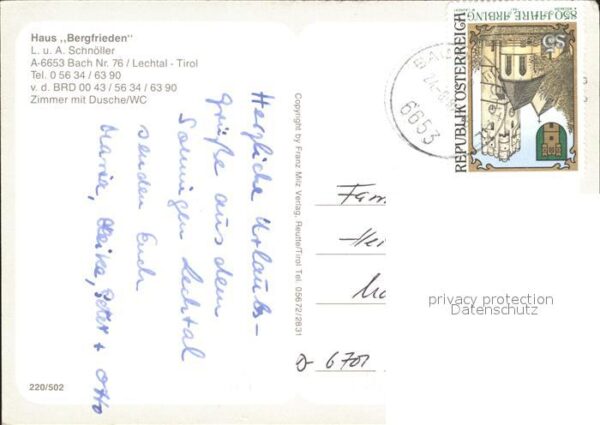 Haus „Bergfrieden"
L. u. A. Schnöller
A-6653 Bach Nr. 76 / Lechtal - Tirol
Tel. 0 56 34 / 63 90
v. d. BRD 00 43 / 56 34 / 63 90
Zimmer mit Dusche/WC
Herzliche Urlaubs-
grüße aus dem
Sonnigen Lechtal
senden Euch
Maria, Heike, Peter + Otto
220/502
Copyright by Franz Milz Verlag, Reutte/Tirol Tel. 05672/2831
850 JAHRE ARBING
S5
REPUBLIK ÖSTERREICH
6653
Fam
D-6701
privacy protection
Datenschutz